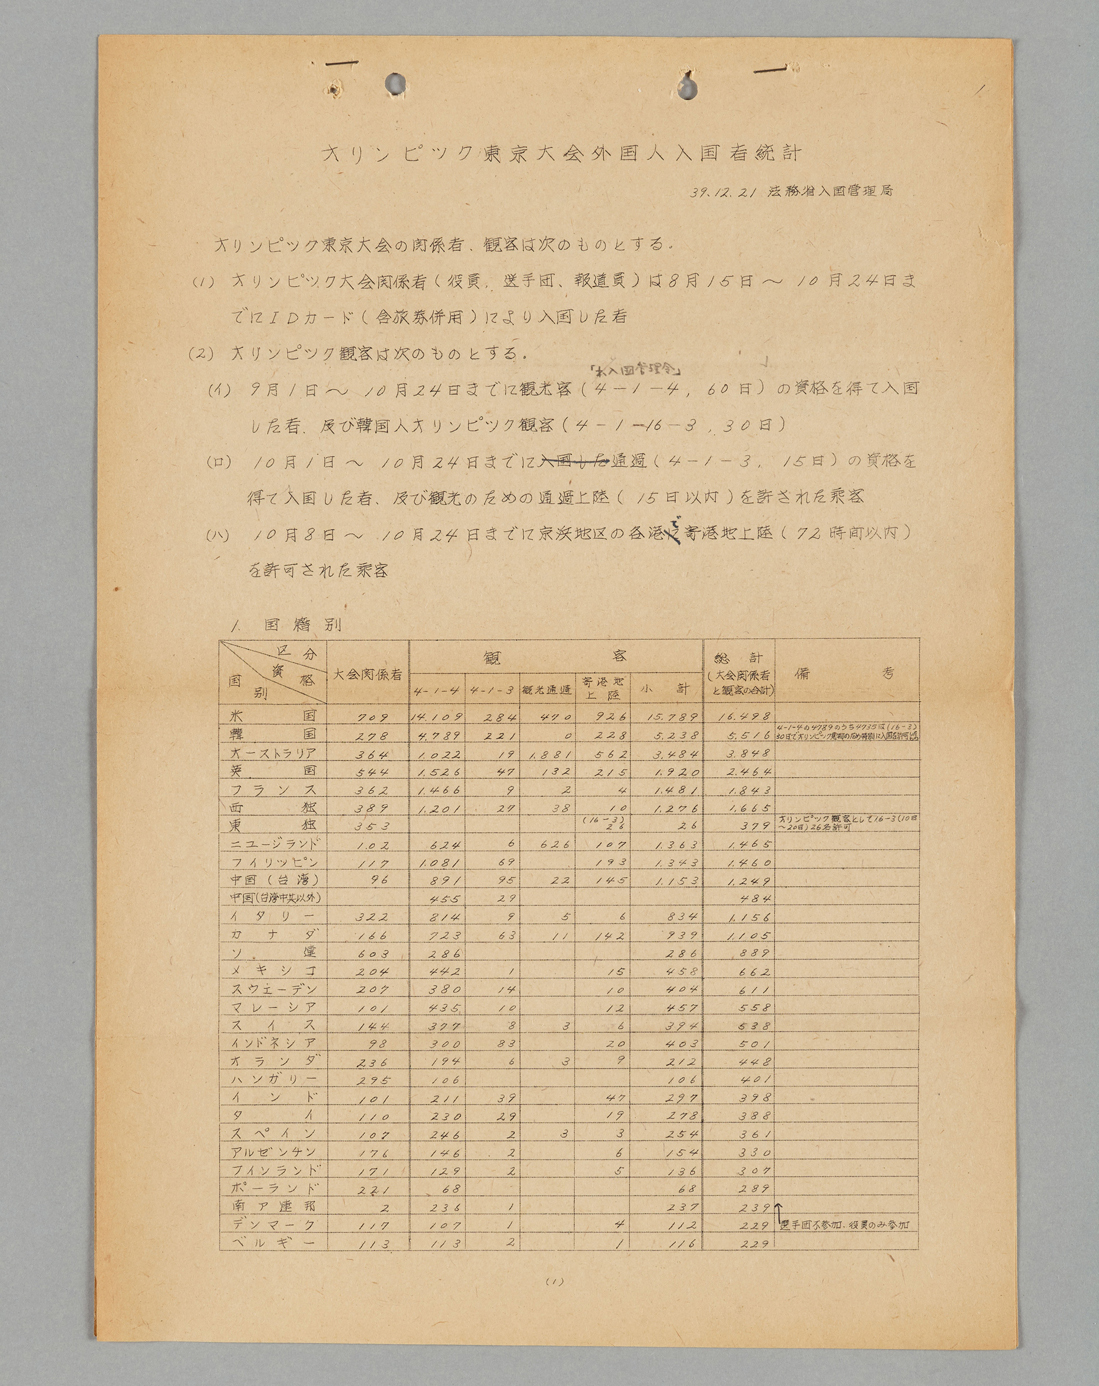 オリンピック東京大会外国人入国者統計
39.12.21 法務省入国管理局
オリンピック東京大会の関係者、観客は次のものとする。
(1) オリンピック大会関係者(役員、選手団、報道員)は8月15日～10月24日ま
でにIDカード(含旅券併用)により入国した者
(2) オリンピック観客は次のものとする。
「出入国管理令」
(イ) 9月1日～10月24日までに観光客(4-1-4, 60日)の資格を得て入国
した者、及び韓国人オリンピック観客(4-1-16-3, 30日)
(ロ) 10月1日～10月24日までに入国した通過(4-1-3, 15日)の資格を
得て入国した者、及び観光のための通過上陸(15日以内)を許された乗客
(ハ) 10月8日～10月24日までに京浜地区の各港で寄港地上陸(72時間以内)
を許可された乗客
1. 国籍別
区分 資格 国別 大会関係者 観客 総計(大会関係者と観客の合計) 備考
4-1-4 4-1-3 観光通過 寄港地上陸 小計
米国 709 14.109 284 470 926 15.789 16.498
韓国 278 4.789 221 0 228 5.238 5.516 4-1-4の4789のうち4735は(16-3)
オーストラリア 364 1.022 19 1.881 562 3.484 3.848
英国 544 1.526 47 132 215 1.920 2.464
フランス 362 1.466 9 2 4 1.481 1.843
西独 389 1.201 27 38 10 1.276 1.665
東独 353 (16-3) 26 26 379 オリンピック観客として16-3(10日～20日)26名許可
ニュージランド 102 624 6 626 107 1.363 1.465
フイリッピン 117 1.081 69 193 1.343 1.460
中国(台湾) 96 891 95 22 145 1.153 1.249
中国(台湾中共以外) 455 29 484
イタリー 322 814 9 5 6 834 1.156
カナダ 166 723 63 11 142 939 1.105
ソ連 603 286 286 889
メキシコ 204 442 1 15 458 662
スウェーデン 207 380 14 10 404 611
マレーシア 101 435 10 12 457 558
スイス 144 377 8 3 6 394 538
インドネシア 98 300 83 20 403 501
オランダ 236 194 6 3 9 212 448
ハンガリー 295 106 106 401
インド 101 211 39 47 297 398
タイ 110 230 29 19 278 388
スペイン 107 246 2 3 3 254 361
アルゼンチン 176 146 2 6 154 330
フインランド 171 129 2 5 136 307
ポーランド 221 68 68 289
南ア連邦 2 236 1 237 239
デンマーク 117 107 1 4 112 229 選手団不参加、役員のみ参加
ベルギー 113 113 2 1 116 229
(1)